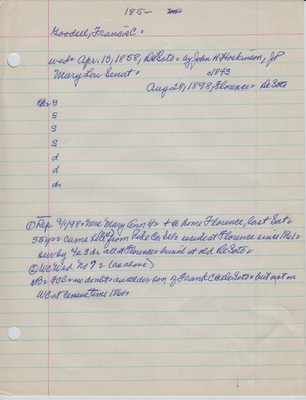 185-
Goodell, Francis C =
wed= Apr. 13, 1858, DeSoto = by John H Hoskinson, JP
Mary Lou Senat = =1843
Aug 28, 1898, Florence = DeSoto
ch= g
s
s
s
d
d
ds
① Rep 9/1/98 = Mrs. Mary Ann G = + @ home Florence, last Sat =
55 yr = came here from Pike Co, Ill = reside at Florence since 1861 =
surv by 4s 3d = all at Florence = burial at old DeSoto =
② WC Wed. No 7 = (as above)
NB = FCG = no doubt = an older son of Frank C @ DeSoto = but not in
WC at census time 1860 =